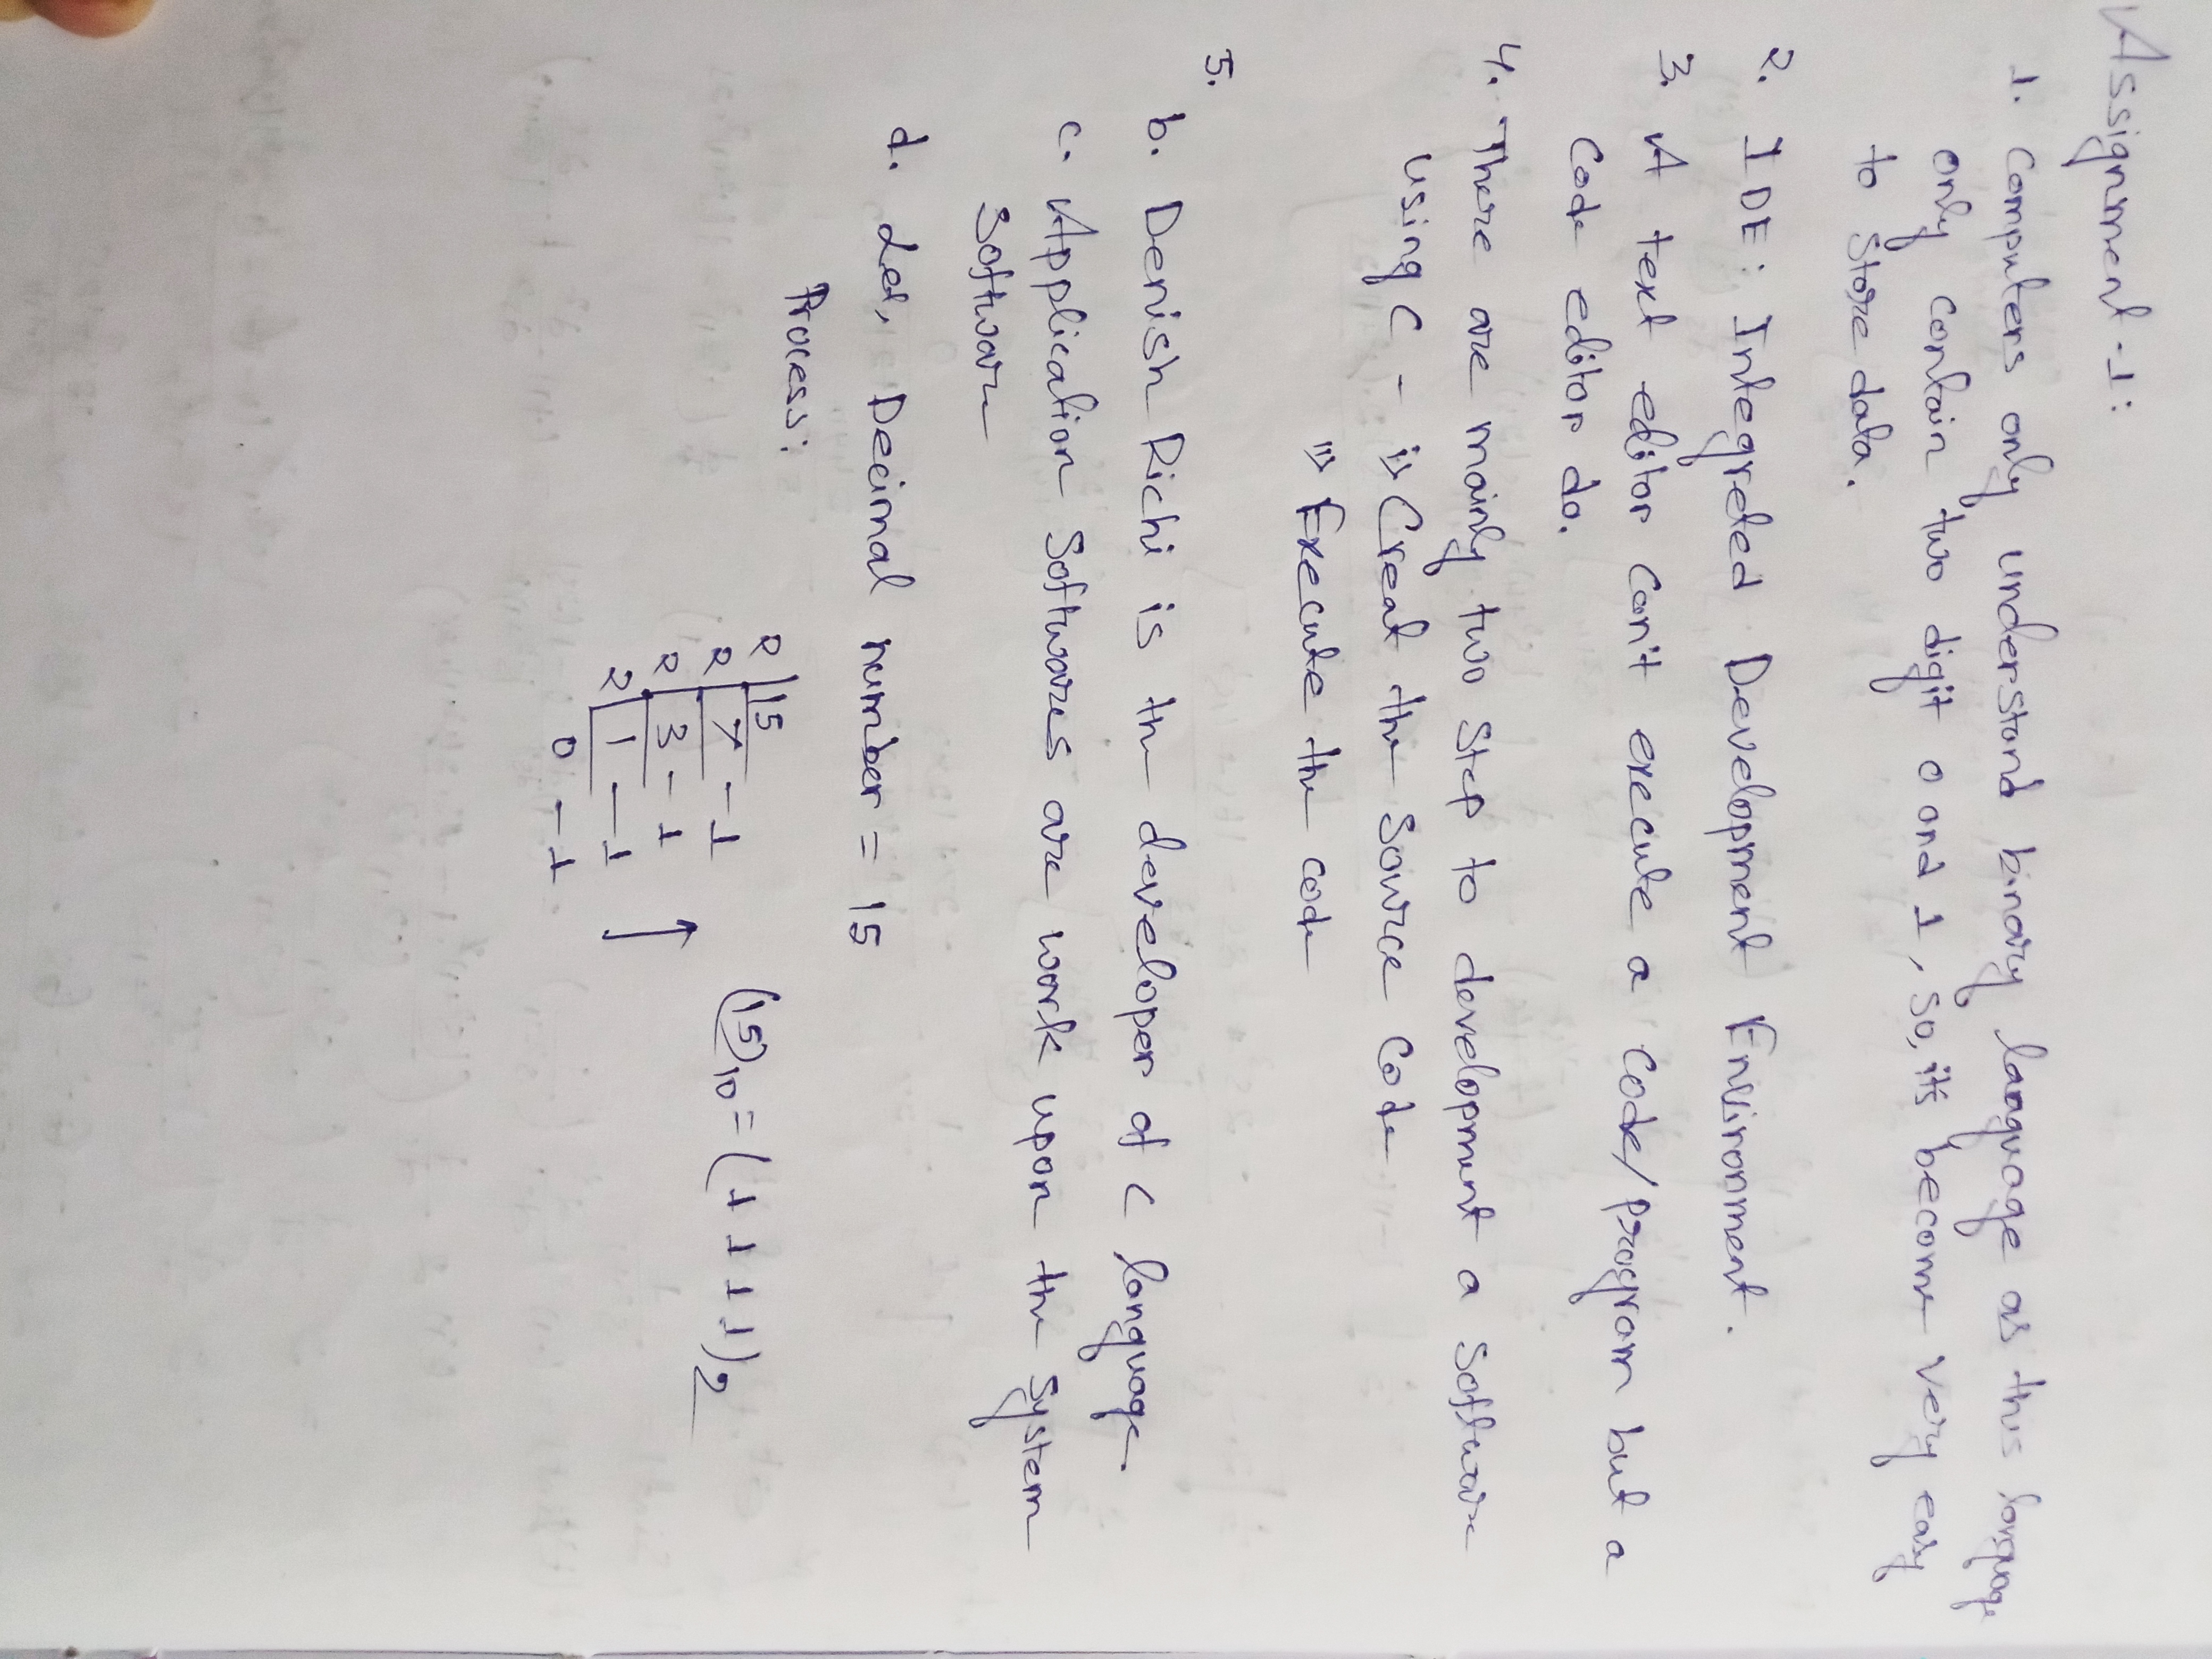 Assignment-1:
1. Computers only understand binary language as this language
only contain two digit 0 and 1, so, its become very easy
to store data.
2. IDE: Integreted Development Environment.
3. A text editor can't execute a code/program but a
code editor do.
4. There are mainly two step to development a software
using C - i) Creat the source code
ii) Execute the code
5.
b. Denish Richi is the developer of C language.
c. Application softwares are work upon the system
software
d. Let, Decimal number = 15
Process:
2 15
2 7 - 1
2 3 - 1
2 1 - 1
0 - 1
(15)10 = (1 1 1 1)2